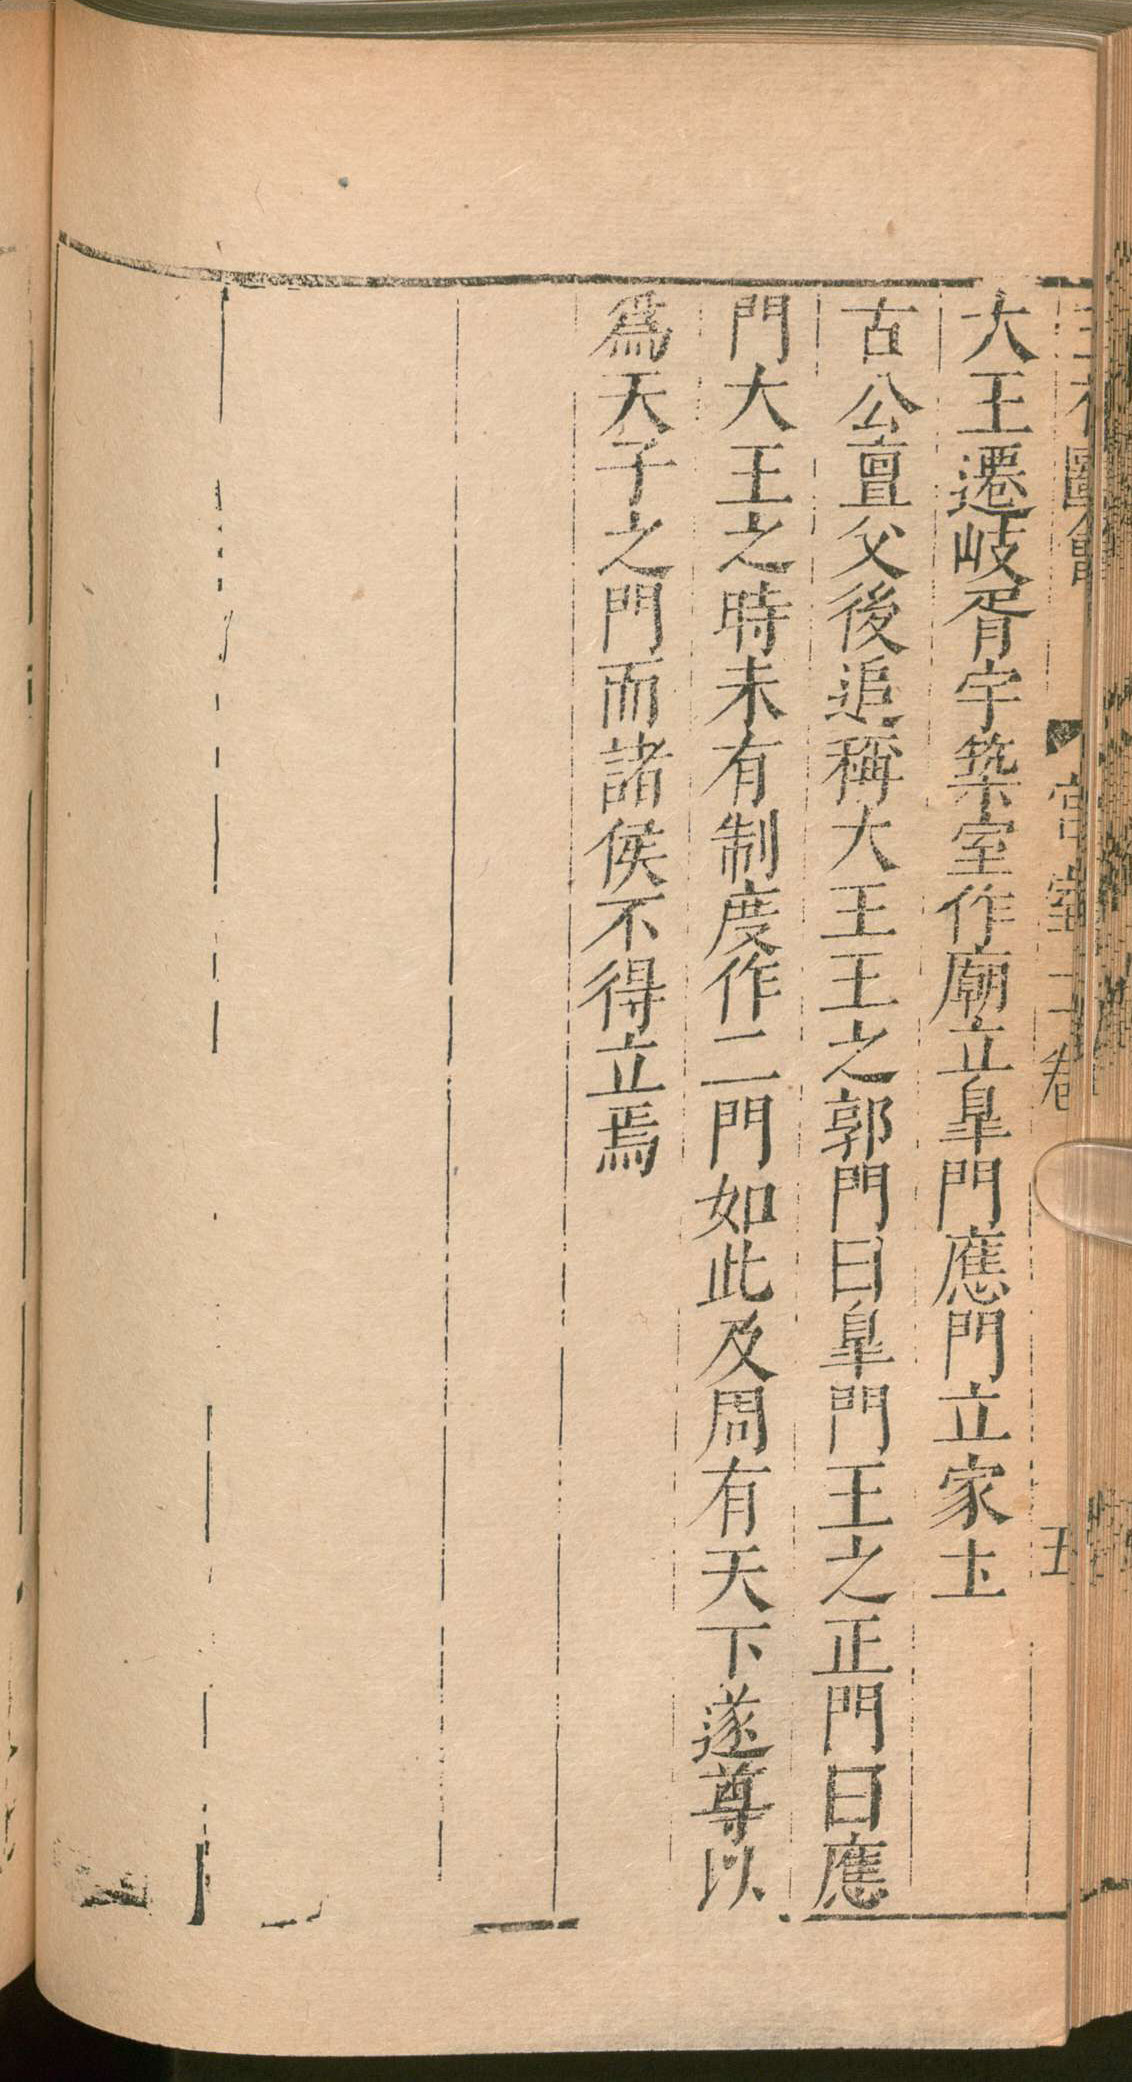 三才圖會 宮室二卷 五
大王遷岐胥宇築室作廟立臯門應門立冢土
古公亶父後追稱大王王之郭門曰臯門王之正門曰應
門大王之時未有制度作二門如此及周有天下遂尊以
爲天子之門而諸侯不得立焉